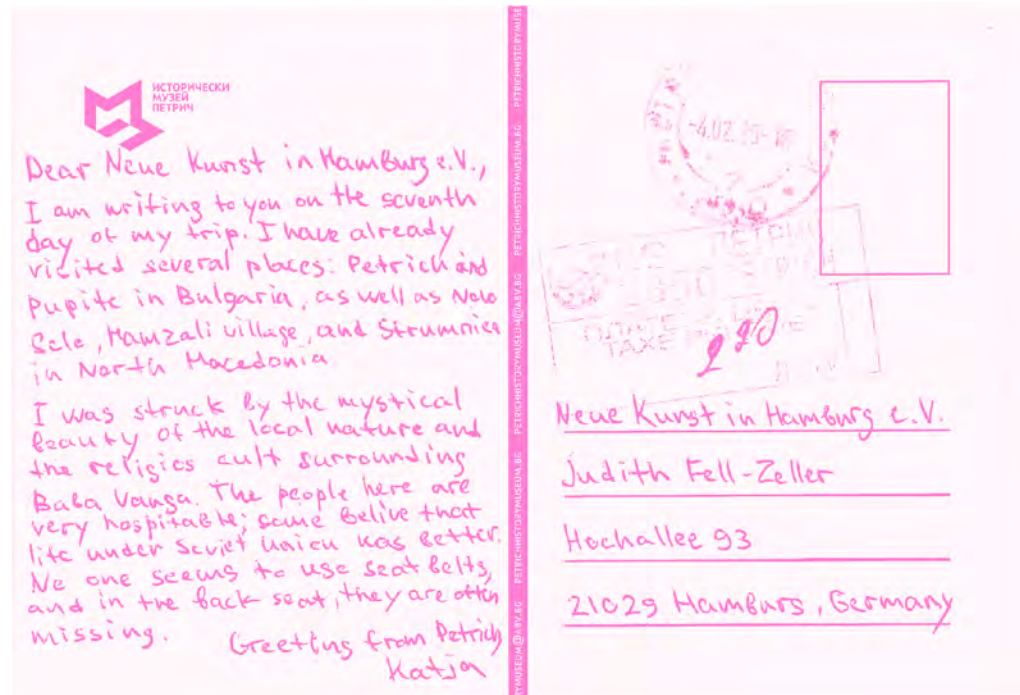 ИСТОРИЧЕСКИ
МУЗЕЙ
ПЕТРИЧ
Dear Neue Kunst in Hamburg e.V.,
I am writing to you on the seventh
day of my trip. I have already
visited several places: Petrich and
Pupite in Bulgaria, as well as Novo
Sele, Hamzali village, and Strumnica
in North Macedonia.
I was struck by the mystical
beauty of the local nature and
the religios cult surrounding
Baba Vanga. The people here are
very hospitable; some belive that
life under Soviet Union was better.
No one seems to use seat belts,
and in the back seat, they are often
missing.
Greeting from Petrich
Katja
PETRICHHISTORYMUSEUM@ABV.BG PETRICHHISTORYMUSEUM@ABV.BG PETRICHHISTORYMUSEUM@ABV.BG
-4.02.25-
TAXE
2 90
Neue Kunst in Hamburg e.V.
Judith Fell-Zeller
Hochallee 93
21029 Hamburg, Germany